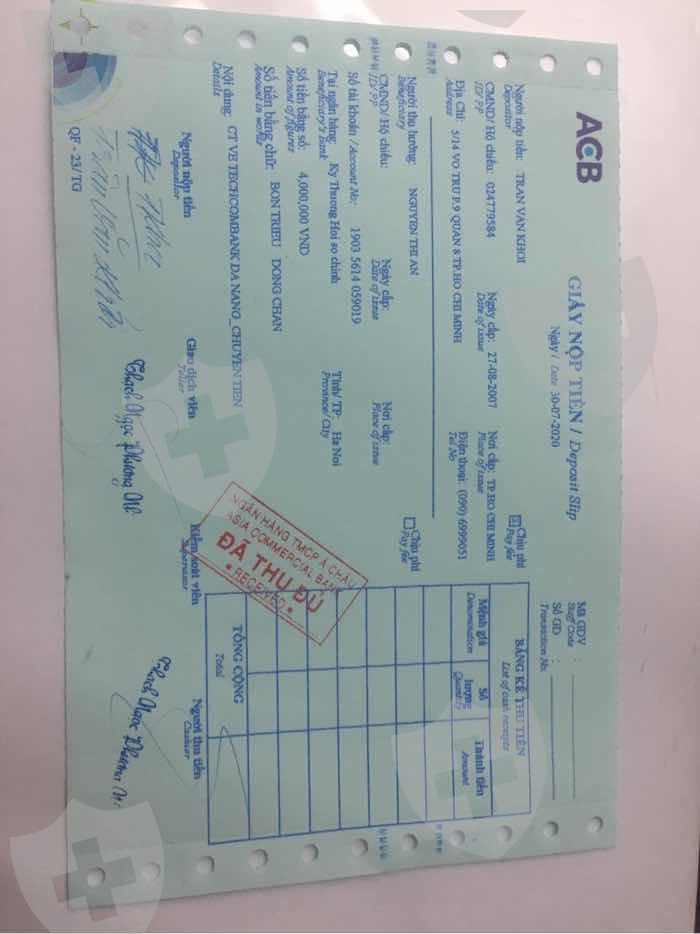 ACB
GIẤY NỘP TIỀN / Deposit Slip
Ngày / Date 30-07-2020
Mã GDV :
Staff Code
Số GD :
Transaction No.
Người nộp tiền: TRAN VAN KHOI
Depositor
Chịu phí
Pay fee
CMND/ Hộ chiếu: 024779584 Ngày cấp: 27-08-2007 Nơi cấp: TP.HO CHI MINH
ID/ PP Date of issue Place of issue
Địa Chỉ: 5/14 VO TRU P.9 QUAN 8 TP.HO CHI MINH Điện thoại: (090) 6999051
Address Tel No
Người thụ hưởng: NGUYEN THI AN
Beneficiary
Chịu phí
Pay fee
CMND/ Hộ chiếu: Ngày cấp: Nơi cấp:
ID/ PP Date of issue Place of issue
Số tài khoản / Account No: 1903 5614 059019
Tại ngân hàng: Ky Thuong Hoi so chinh Tỉnh/ TP: Ha Noi
Beneficiary's Bank Province/ City
Số tiền bằng số: 4,000,000 VND
Amount of figures
Số tiền bằng chữ: BON TRIEU DONG CHAN
Amount in words
Nội dung: CT VE TECHCOMBANK DA NANG_CHUYEN TIEN
Details
BẢNG KÊ THU TIỀN
List of cash receipts
Mệnh giá Số lượng Thành tiền
Denomination Quantity Amount
TỔNG CỘNG
Total
NGÂN HÀNG TMCP Á CHÂU
ASIA COMMERCIAL BANK
ĐÃ THU ĐỦ
• RECEIVED •
Người nộp tiền Giao dịch viên Kiểm soát viên Người thu tiền
Depositor Teller Supervisor Cashier
Trần Văn Khởi
Thạch Ngọc Phương
Thạch Ngọc Phương
QF - 23/TG